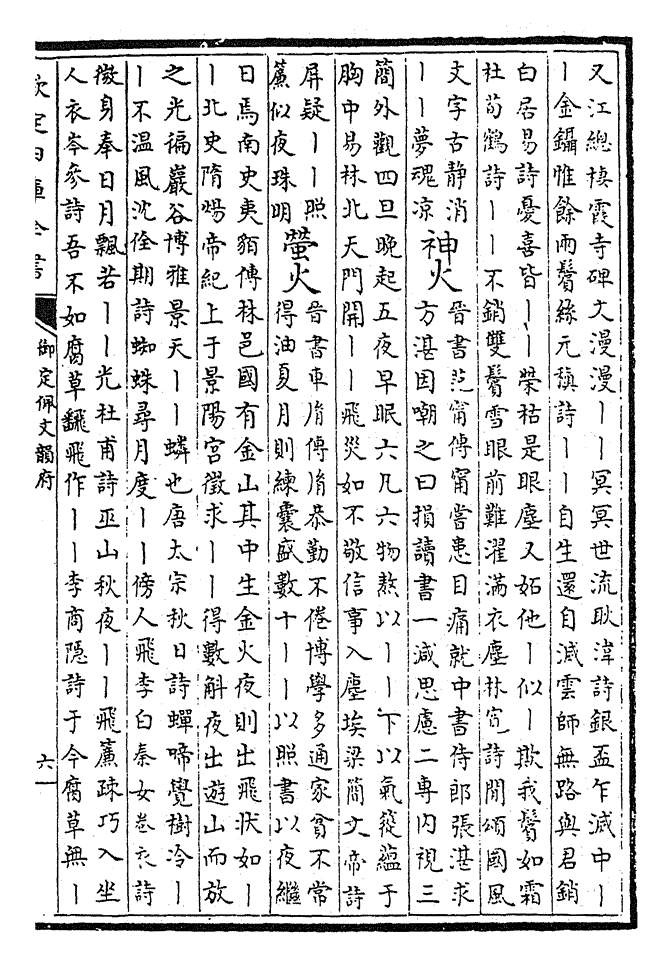 又江總棲霞寺碑文漫漫丨丨冥冥世流耿湋詩銀盃乍滅中丨
丨金鑷惟餘兩鬢絲元稹詩丨丨自生還自滅雲師無路與君銷
白居易詩憂喜皆丨丨榮枯是眼塵又妬他丨似丨欺我鬢如霜
杜荀鶴詩丨丨不銷雙鬢雪眼前難濯滿衣塵林寛詩閒頌國風
文字古静消
丨丨夢魂凉
神火
晉書范甯傳甯嘗患目痛就中書侍郎張湛求
方湛因嘲之曰損讀書一減思慮二專内視三
簡外觀四旦晚起五夜早眠六凡六物熬以丨丨下以氣簁蘊于
胸中易林北天門開丨丨飛災如不敬信事入塵埃梁簡文帝詩
屏疑丨丨照
簾似夜珠明
螢火
晉書車胤傳胤恭勤不倦博學多通家貧不常
得油夏月則練囊盛數十丨丨以照書以夜繼
日焉南史夷貊傳林邑國有金山其中生金火夜則出飛狀如丨
丨北史隋煬帝紀上于景陽宮徵求丨丨得數斛夜出遊山而放
之光徧巖谷博雅景天丨丨䗲也唐太宗秋日詩蟬啼覺樹冷丨
丨不溫風沈佺期詩蜘蛛尋月度丨丨傍人飛李白秦女卷衣詩
微身奉日月飄若丨丨光杜甫詩巫山秋夜丨丨飛簾疎巧入坐
人衣岑參詩吾不如腐草飜飛作丨丨李商隱詩于今腐草無丨
欽定四庫全書
御定佩文韻府
六